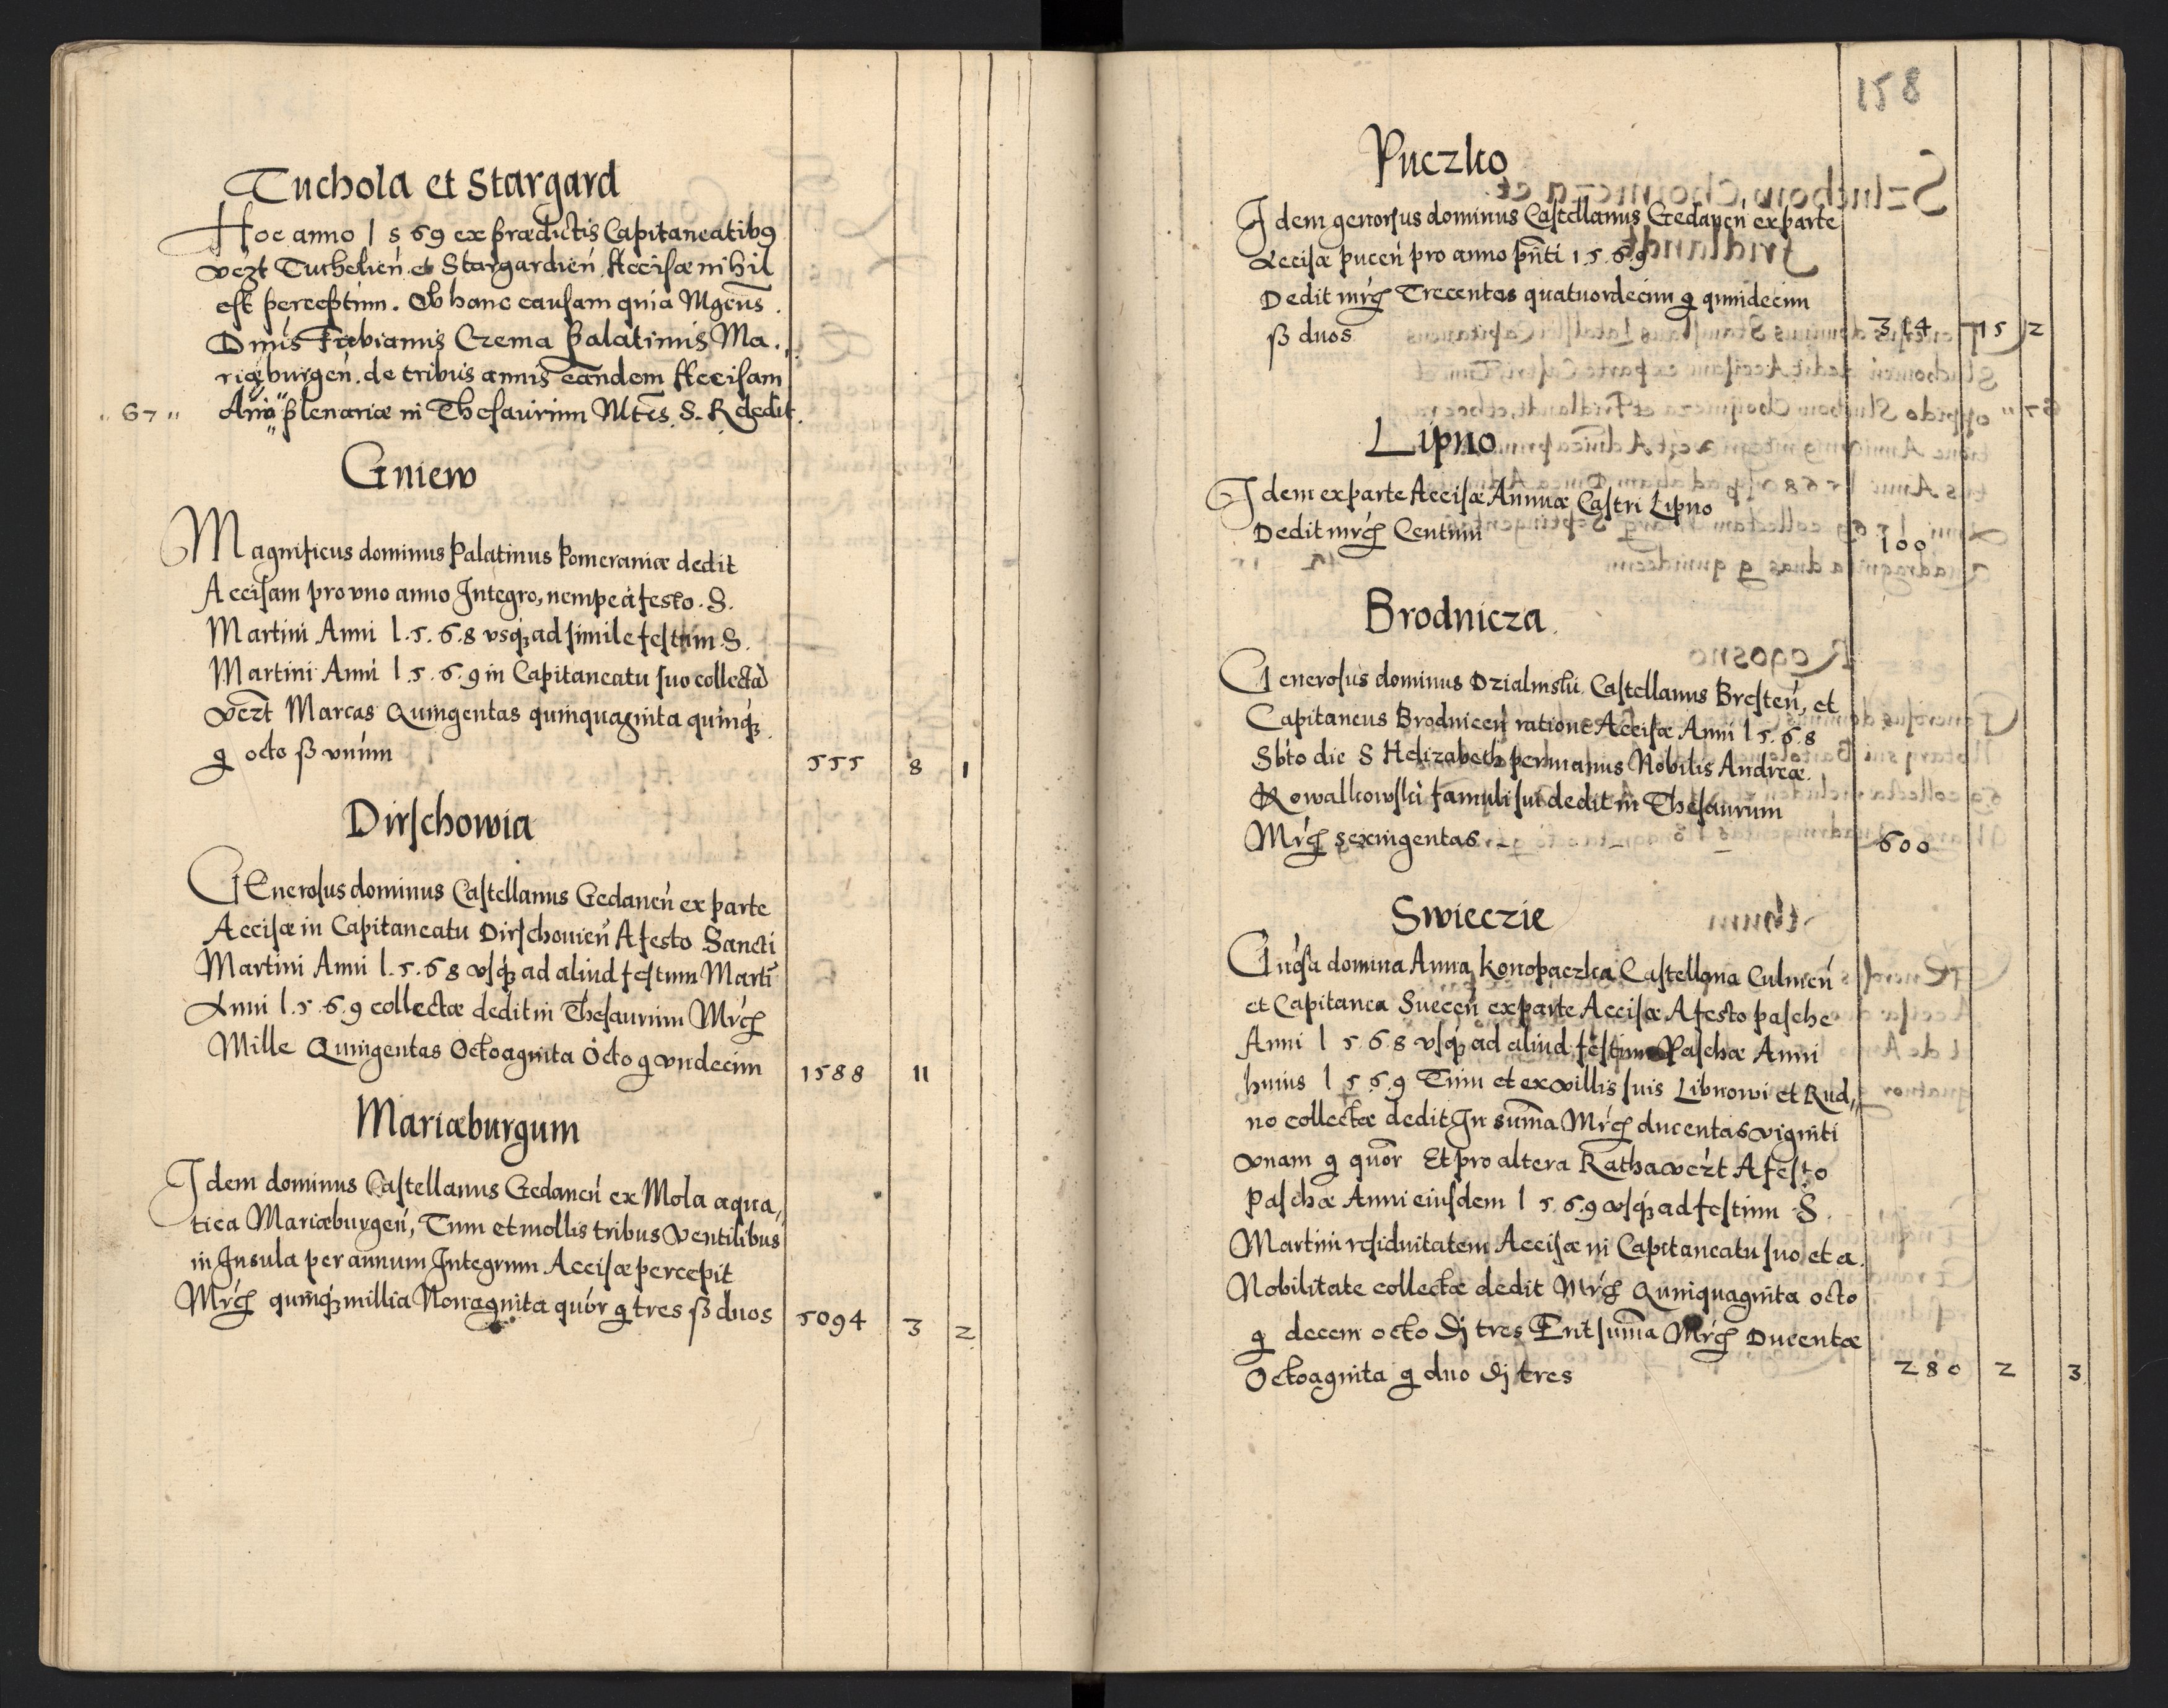 Tuchola et Stargard
Hoc anno 1569 ex prædictis Capitaneatibq
vezt Tucholień. et Stargardień. Accisæ nihil
est perceptum. Ob hanc causam quia Mgcus.
Dnus Fabianus Czema palatinus Ma„
riæburgeń. de tribus annis eandem Accisam
„67„ Ano plenariæ in Thesaurum Mtis. S. R dedit.
Gniew
Magnificus dominus Palatinus Pomeraniæ dedit
Accisam pro vno anno Integro, nempe à festo. S.
Martini Anni 1.5.6.8 vsqȝ ad simile festum S.
Martini Anni 1.5.6.9 in Capitaneatu suo collectā
vezt Marcas Quingentas quinquaginta quinqȝ
g octo ß vnum 555 8 1
Dirschowia
GEnerosus dominus Castellanus Gedaneń ex parte
Accisæ in Capitaneatu Dirschouień A festo Sancti
Martini Anni 1.5.68 vsqȝ ad aliud festum Marti
Anni 1.5.6.9 collectæ dedit in Thesaurum Mrcſ
Mille Quingentas Octoaginta Octo g vndecim 1588 11
Mariæburgum
Idem dominus Castellanus Gedaneń ex Mola aqua„
tica Mariæburgeń, Tum et mollis tribus Ventilibus
in Insula per annum Integrum Accisæ percepit
Mrcſ quinqȝ millia Nonaginta quor g tres ß duos 5094 3 2
158
Puczko
Idem generosus dominus Castellanus Gedaneń ex parte
Accisæ puceń pro anno pnti 1.5.6.9
Dedit mrcſ Trecentas quatuordecim g quindecim
ß duos 314 15 2
Lipno
Idem ex parte Accisæ Annuæ Castri Lipno
Dedit mrcſ Centum 100
Brodnicza
Generosus dominus Dzialinski Castellanus Bresteń, et
Capitaneus Brodniceń ratione Accisæ Anni 1.5.6.8
Sbto die S Helizabeth per manus Nobilis Andreæ
Kowalkowski famuli sui dedit in Thesaurum
Mrcſ sexingentas 600
Swieczie
Gnosa domina Anna Konopaczka Castellana Culmeń
et Capitanea Sueceń ex parte Accisæ A festo pasche
Anni 1 5.6.8 vsqȝ ad aliud festum Paschæ Anni
huius 1 5 6.9 Tum et ex villis suis Libnowi et Rud„
no collectæ dedit In suma Mrcſ ducentas viginti
vnam g quor Et pro altera Ratha vezt A festo
Paschæ Anni eiusdem 1 5.6.9 vsqȝ ad festum S.
Martini residuitatem Accisæ in Capitaneatu suo et a
Nobilitate collectæ dedit Mrcſ Quinquaginta octo
g decem octo dj tres Erit suma Mrcſ Ducentæ
Octoaginta g duo dj tres 280 2 3